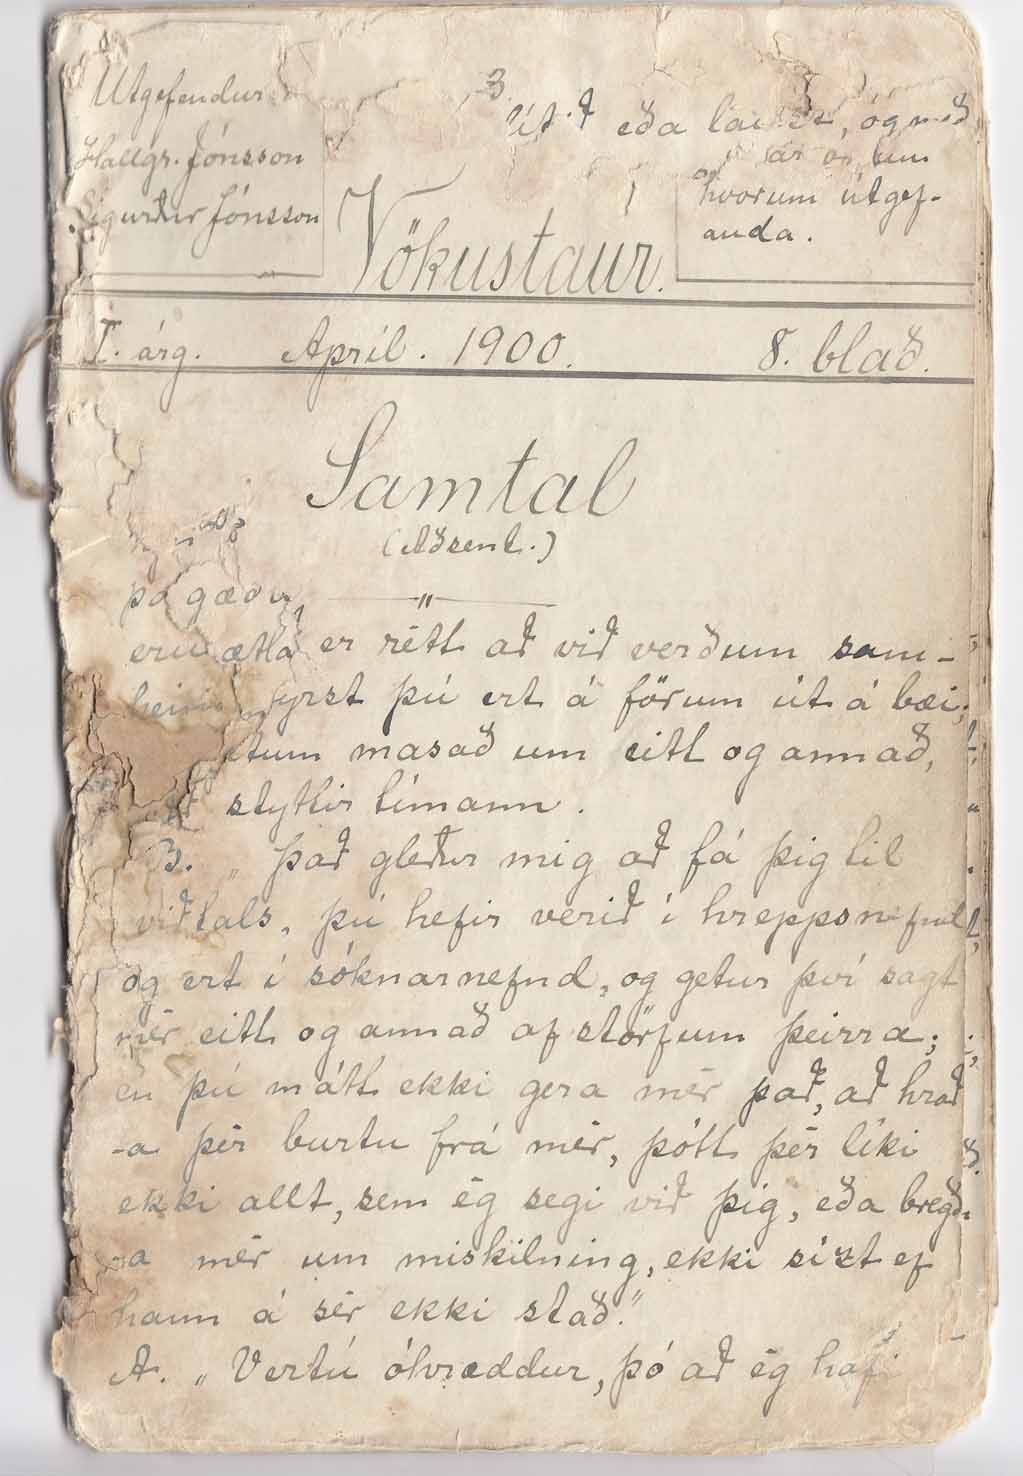 Útgefendur
Hallgr. Jónsson
Sigurður Jónsson
3
eða
um
hvorum útgef-
anda.
Vökustaur.
I. árg. Apríl. 1900. 8. blað.
Samtal
(Aðsent.)
þá gæðu
er rétt að við verðum sam-
fyrst þú ert á förum út á bæi;
masað um eitt og annað,
styttir tímann.
B. „Það gleður mig að fá þig til
viðtals, þú hefir verið í hreppsnefnd
og ert í sóknarnefnd, og getur því sagt
mér eitt og annað af störfum þeirra;
en þú mátt ekki gera mér það, að hrað
-a þér burtu frá mér, þótt þér líki
ekki allt, sem ég segi við þig, eða bregð-
a mér um miskilning, ekki sízt ef
hann á sér ekki stað.“
A. „Vertú óhræddur, þó að ég hafi